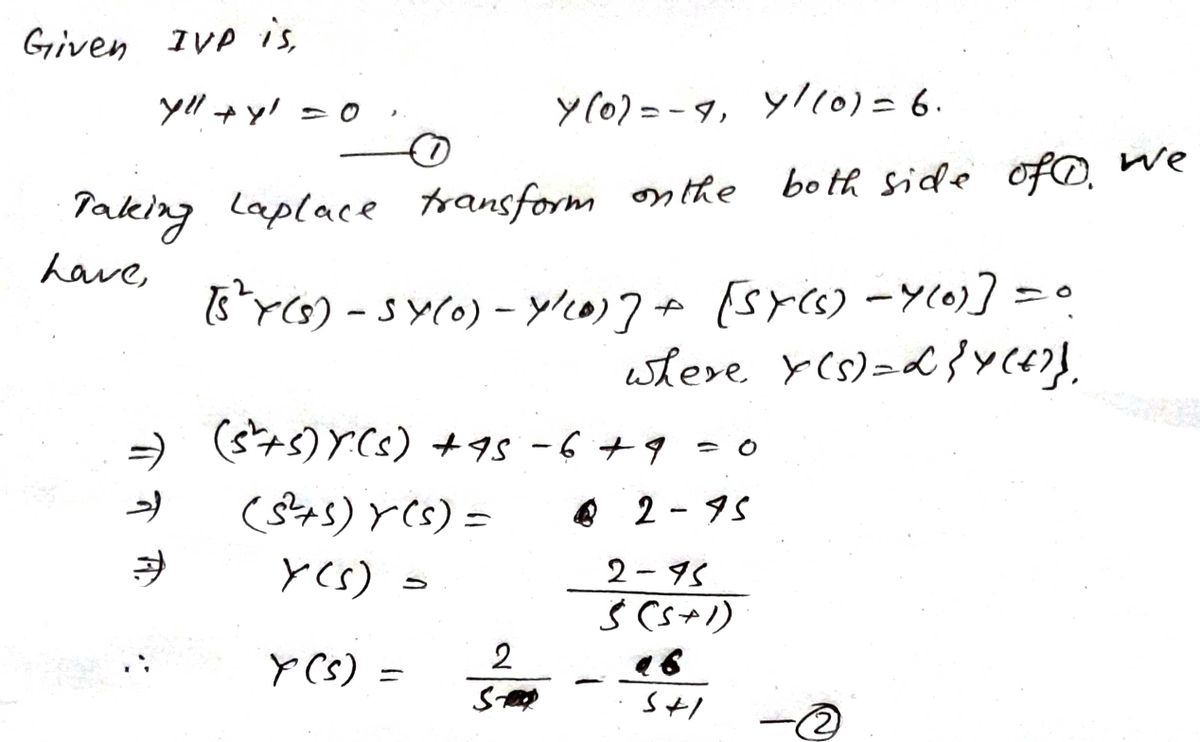 Given IVP is,
y'' + y' = 0 , y(0) = -4, y'(0) = 6.
—①
Taking Laplace transform on the both side of ①. We
have,
[s²Y(s) - sy(0) - y'(0)] + [sY(s) - y(0)] = 0
where Y(s) = ℒ{y(t)}.
⇒ (s²+s)Y(s) + 4s - 6 + 4 = 0
⇒ (s²+s)Y(s) = 2 - 4s
⇒ Y(s) = (2 - 4s)/(s(s+1))
∴ Y(s) = 2/s - 6/(s+1) —②